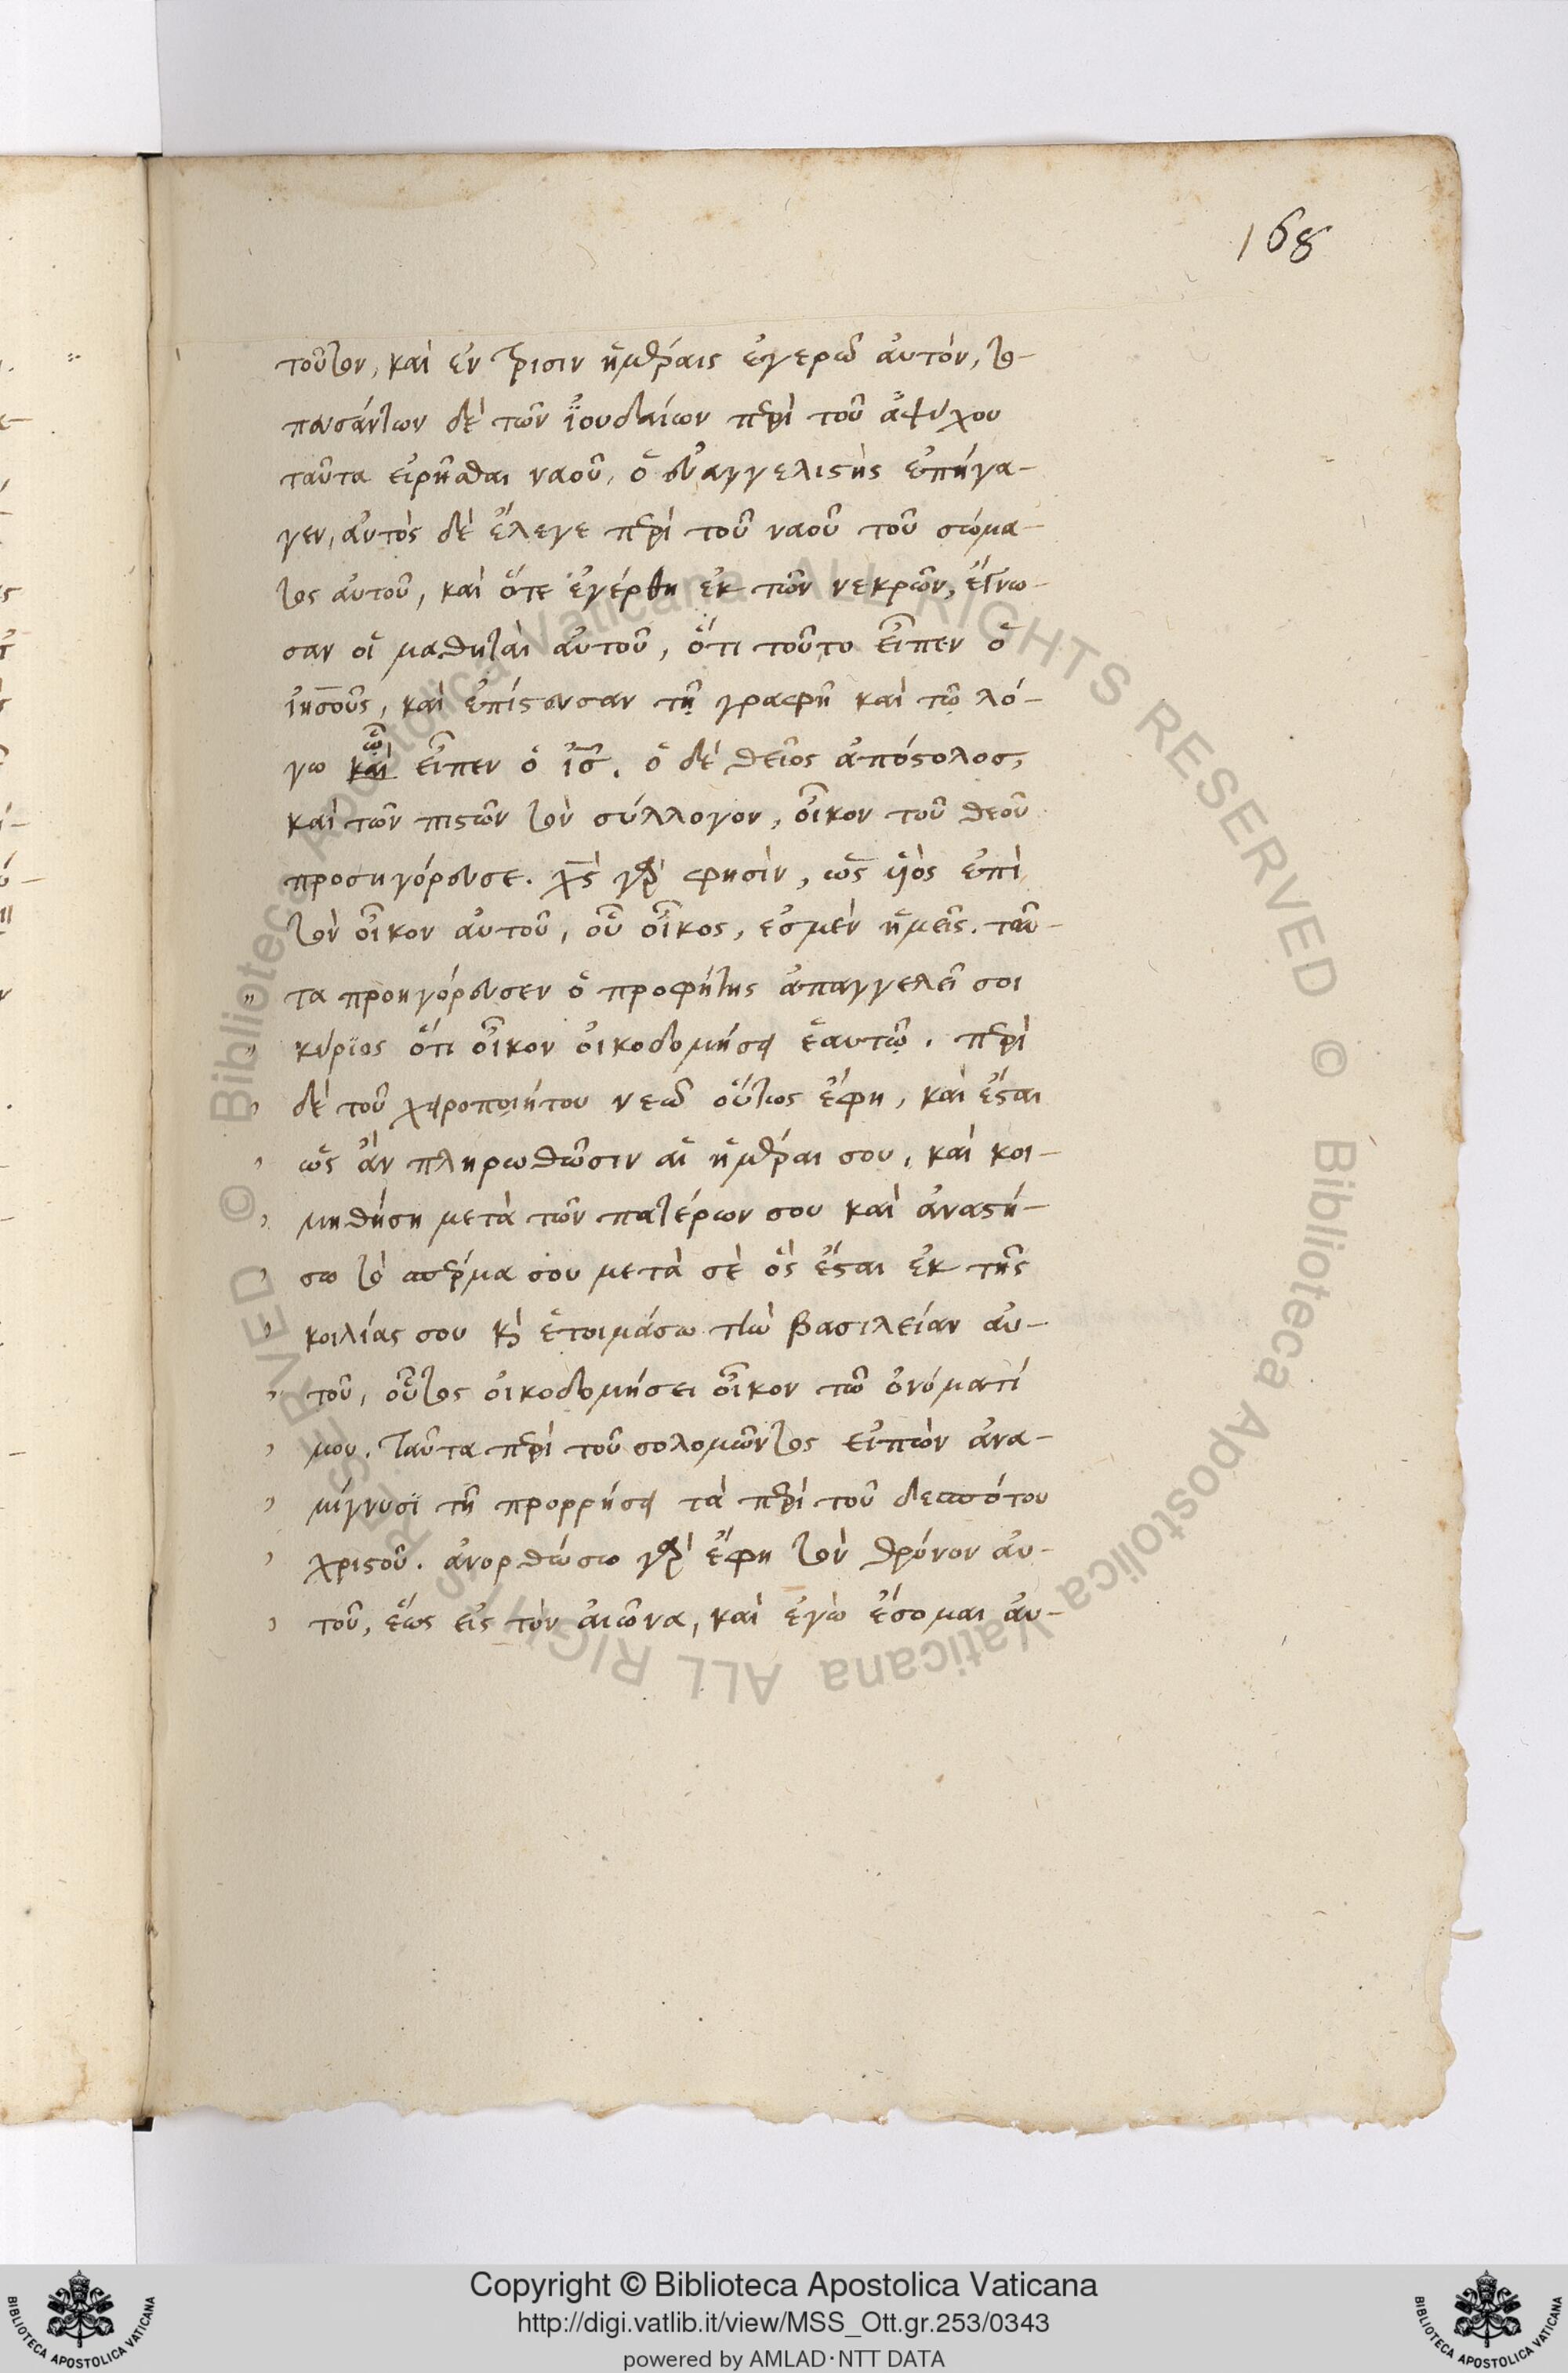 168
τοῦτον, καὶ ἐν τρισὶν ἡμέραις ἐγερῶ αὐτόν, το-
πασάντων δὲ τῶν ἰουδαίων περὶ τοῦ ἀψύχου
ταῦτα εἰρῆσθαι ναοῦ, ὁ εὐαγγελιστὴς ἐπήγα-
γεν, αὐτὸς δὲ ἔλεγε περὶ τοῦ ναοῦ τοῦ σώμα-
τος αὐτοῦ, καὶ ὅτε ἐγέρθη ἐκ τῶν νεκρῶν, ἔγνω-
σαν οἱ μαθηταὶ αὐτοῦ, ὅτι τοῦτο εἶπεν ὁ
ἰησοῦς, καὶ ἐπίστευσαν τῇ γραφῇ καὶ τῷ λό-
γω ᾧ εἶπεν ὁ ἰσ̅. ὁ δὲ θεῖος ἀπόστολος,
καὶ τῶν πιστῶν τὸν σύλλογον, οἶκον τοῦ θεοῦ
προσηγόρευσε. χς̅ γὰρ φησὶν, ὡς υἱὸς ἐπὶ
τὸν οἶκον αὐτοῦ, οὗ οἶκος, ἐσμὲν ἡμεῖς. ταῦ-
τα προηγόρευσεν ὁ προφήτης ἀπαγγελεῖ σοι
κύριος ὅτι οἶκον οἰκοδομήσει ἑαυτῷ. περὶ
δὲ τοῦ χειροποιήτου νεὼ οὕτως ἔφη, καὶ ἔσται
ὡς ἂν πληρωθῶσιν αἱ ἡμέραι σου, καὶ κοι-
μηθήση μετὰ τῶν πατέρων σου καὶ ἀναστή-
σω τὸ σπέρμα σου μετὰ σὲ ὃς ἔσται ἐκ τῆς
κοιλίας σου κὶ ἑτοιμάσω τὴν βασιλείαν αὐ-
τοῦ, οὗτος οἰκοδομήσει οἶκον τῶ ὀνόματί
μου. ταῦτα περὶ τοῦ σολομῶντος εἰπὼν ἀνα-
μίγνυσϊ τῆ προρρήσει τὰ περὶ τοῦ δεσπότου
χριστοῦ. ἀνορθώσω γὰρ ἔφη τὸν θρόνον αὐ-
τοῦ, ἕως εἰς τὸν αἰῶνα, καὶ ἐγὼ ἔσομαι αὐ-
© Biblioteca Apostolica Vaticana ALL RIGHTS RESERVED © Biblioteca Apostolica Vaticana ALL RIGHTS RESERVED
Copyright © Biblioteca Apostolica Vaticana
http://digi.vatlib.it/view/MSS_Ott.gr.253/0343
powered by AMLAD·NTT DATA
BIBLIOTECA APOSTOLICA VATICANA
BIBLIOTECA APOSTOLICA VATICANA